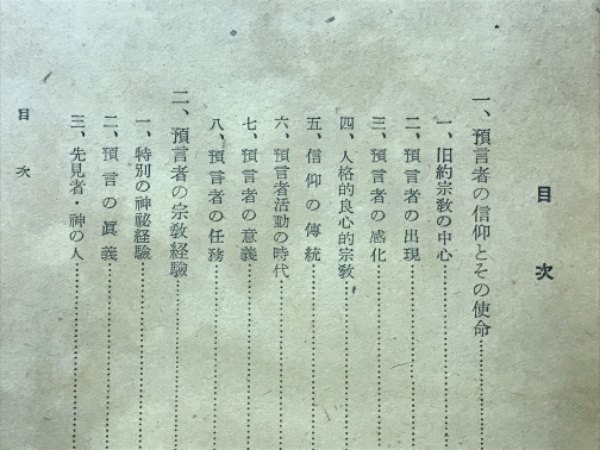 目次
一、預言者の信仰とその使命
一、旧約宗敎の中心
二、預言者の出現
三、預言者の感化
四、人格的良心的宗敎
五、信仰の傳統
六、預言者活動の時代
七、預言者の意義
八、預言者の任務
二、預言者の宗敎経驗
一、特別の神祕経驗
二、預言の眞義
三、先見者・神の人
目次